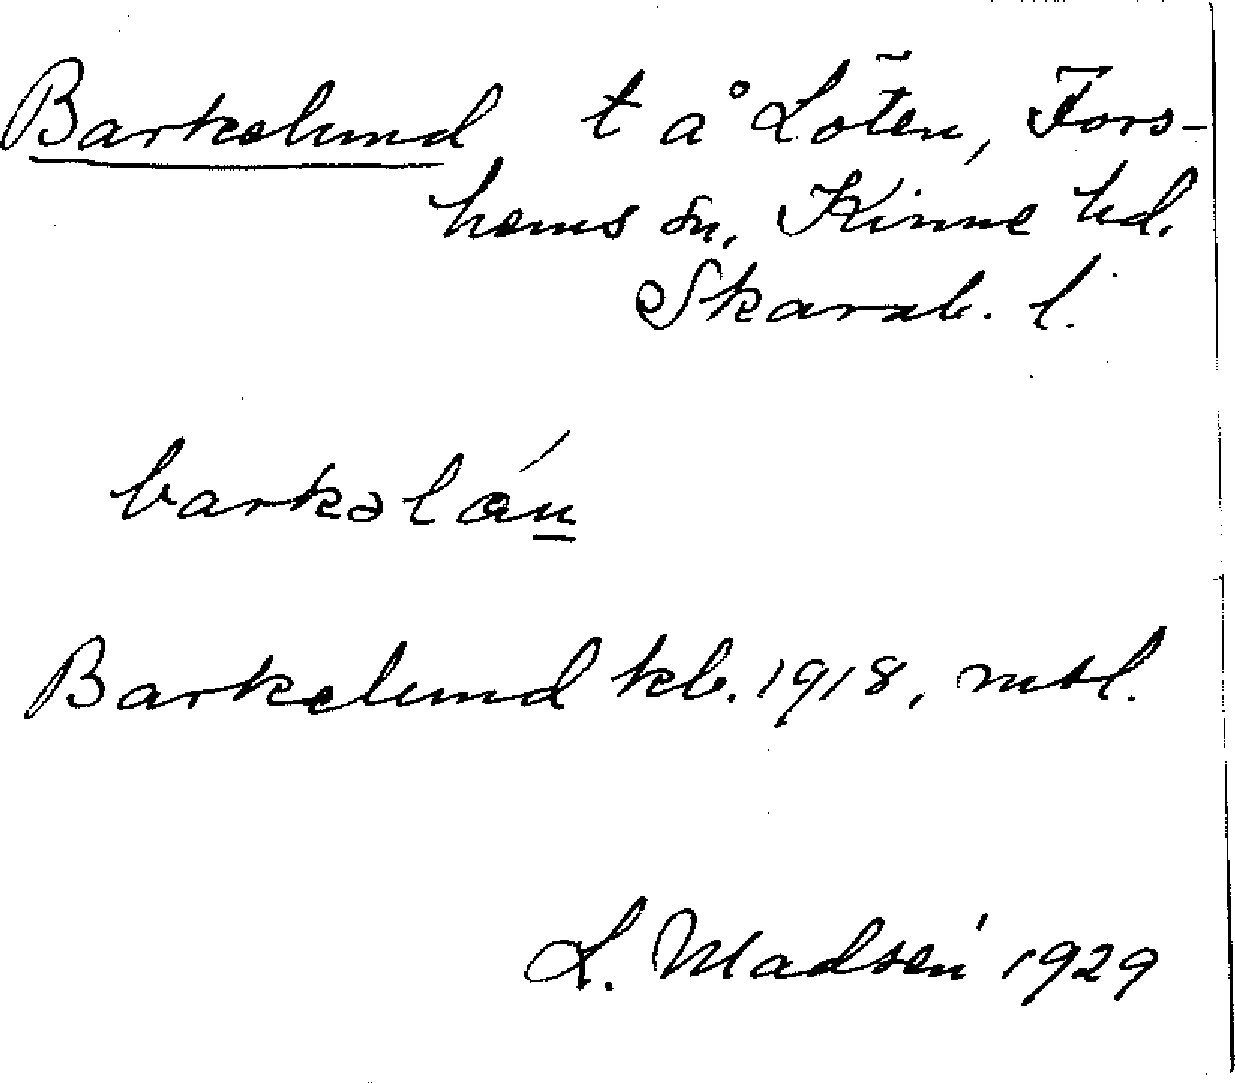 Barkelund t å Löten, Fors-
hems sn, Kinne hd.
Skarab. l.
barkəlán
Barkelund kb. 1918, mtl.
L. Madsén 1929